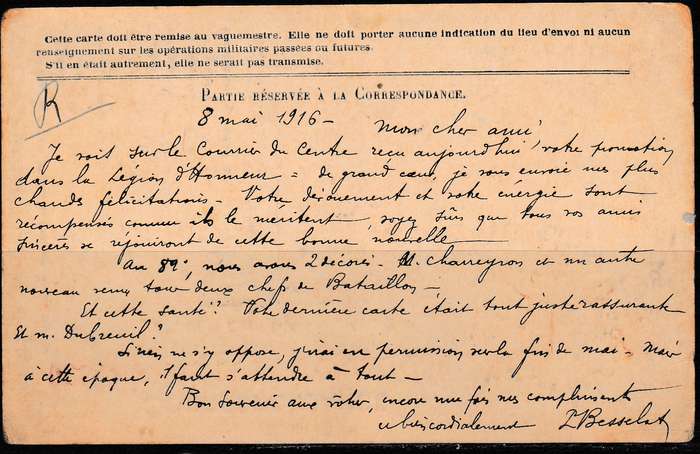 Cette carte doit être remise au vaguemestre. Elle ne doit porter aucune indication du lieu d'envoi ni aucun
renseignement sur les opérations militaires passées ou futures.
S'il en était autrement, elle ne serait pas transmise.
R
PARTIE RÉSERVÉE À LA CORRESPONDANCE.
8 mai 1916 - Mon cher ami
Je vois sur le Courrier du Centre reçu aujourd'hui votre promotion
dans la Légion d'Honneur = de grand cœur, je vous envoie mes plus
chauds félicitations - Votre dévouement et votre énergie sont
récompensés comme ils le méritent, soyez sûrs que tous vos amis
sincères se réjouiront de cette bonne nouvelle -
Au 89e, nous avons 2 décorés - M. Charreyron et un autre
nouveau venu tous deux chefs de Bataillon -
Et cette santé ? Votre dernière carte était tout juste rassurante
Et M. Dubreuil ?
Si rien ne s'y oppose, j'irai en permission vers la fin de mai - Mais
à cette époque, il faut s'attendre à tout -
Bon souvenir aux vôtres, encore une fois mes compliments
et bien cordialement LBesselat